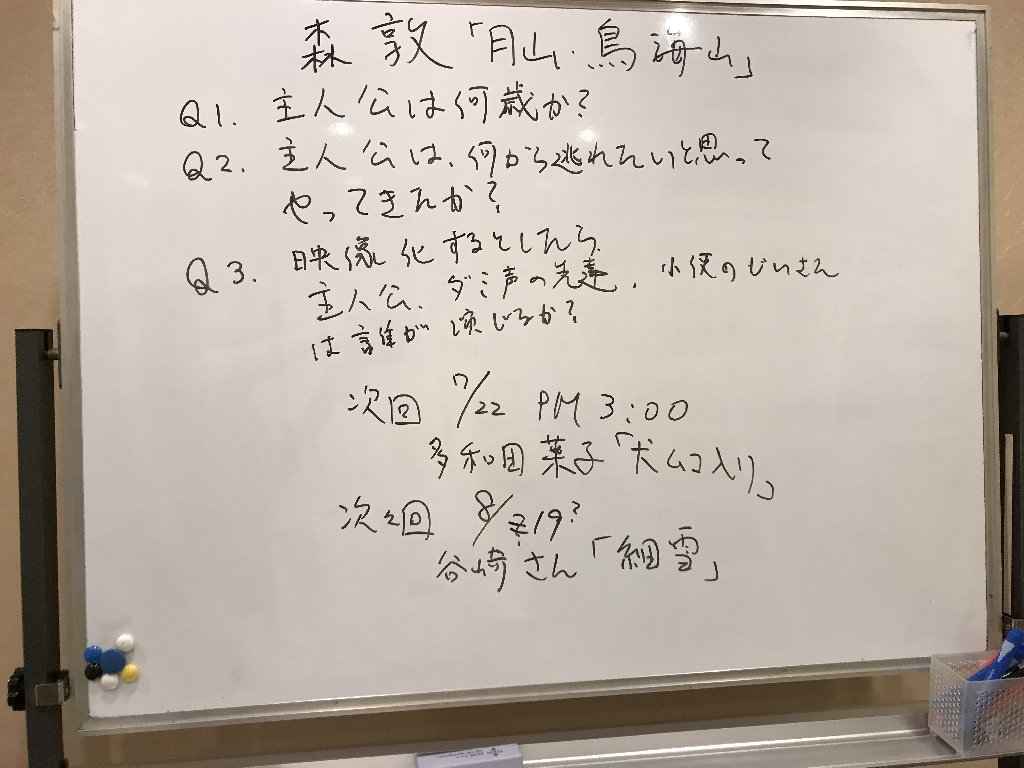 森 敦 「月山・鳥海山」
Q1. 主人公は何歳か?
Q2. 主人公は、何から逃れたいと思って
やってきたか?
Q3. 映像化するとしたら、
主人公、ダミ声の先達、小便のじいさん
は誰が演じるか?
次回 7/22 PM 3:00
多和田葉子「犬ムコ入り」
次々回 8/ 19?
谷崎さん「細雪」